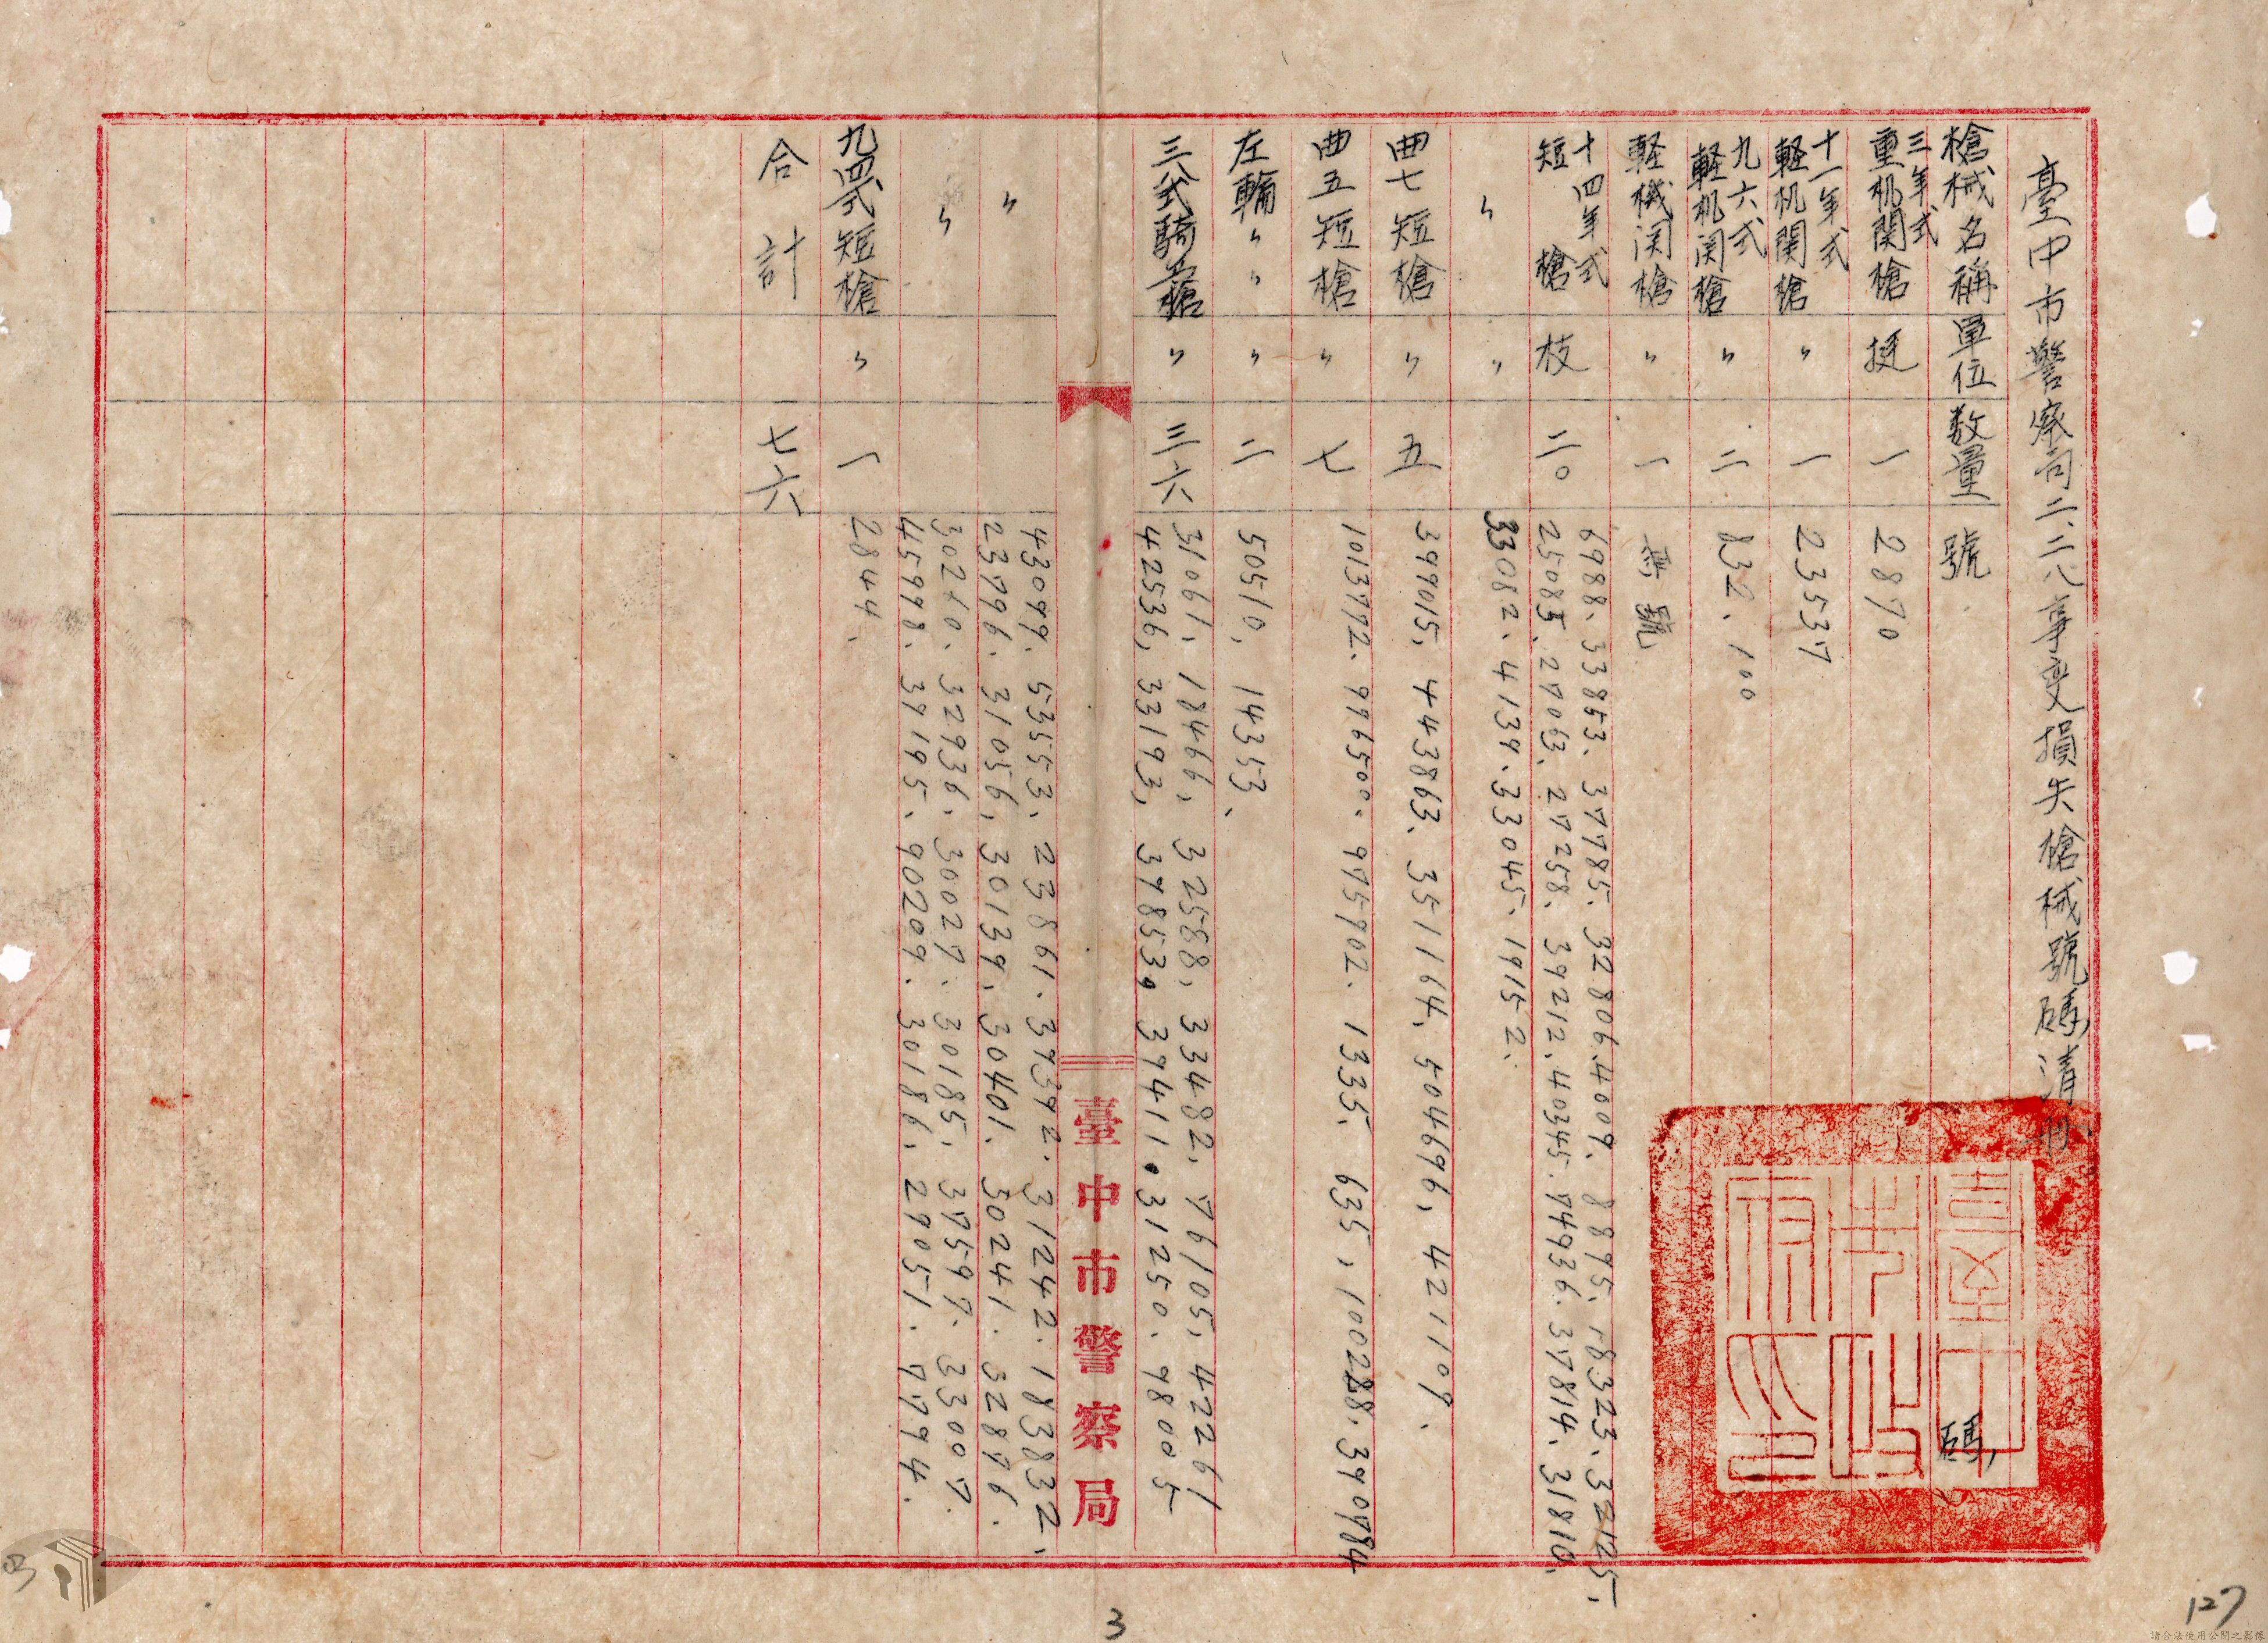 臺中市警察局二、二八事変損失槍械號碼清冊
槍械名稱 單位 数量 號 碼
三年式重机関槍 挺 一 2870
十一年式軽机関槍 〃 一 23537
九六式軽机関槍 〃 二 832、100
軽機関槍 〃 一 無號
十四年式短槍 枝 二〇 6988、33863、37785、32806、4009、8895、18323、32125、
25085、27063、27258、39212、40345、74936、37814、31810、
〃 〃 33082、4139、33045、19152、
曲七短槍 〃 五 399015、443863、351164、504696、421109、
曲五短槍 〃 七 1013792、996500、995902、1335、635、100228、390984
左輪〃〃 〃 二 50510、14353、
三八式騎槍 〃 三六 31061、18466、32588、33482、76105、42261
42536、33193、37853、39411、31250、98005
〃 43099、53553、23861、37392、31242、183832、
23796、31056、30139、30401、30241、32876、
〃 30240、32936、30027、30185、37597、33007、
45998、39195、90209、30186、29051、7794、
九四式短槍 〃 一 2844、
合計 七六
臺中市警察局
臺中市政府之印
3
127
請合法使用公開之影像